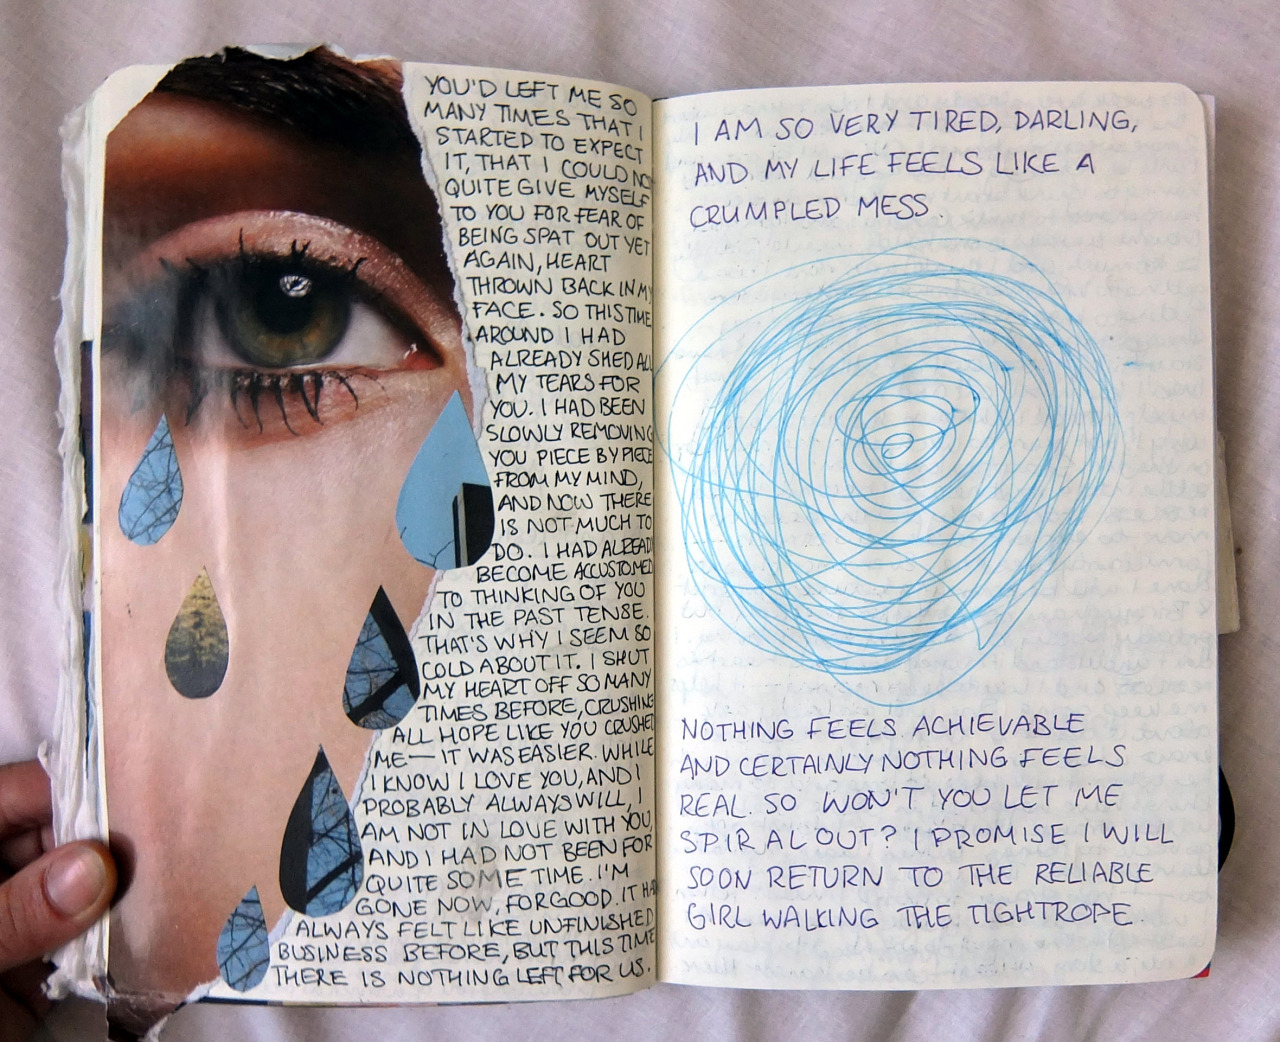 YOU'D LEFT ME SO
MANY TIMES THAT I
STARTED TO EXPECT
IT, THAT I COULD NOT
QUITE GIVE MYSELF
TO YOU FOR FEAR OF
BEING SPAT OUT YET
AGAIN, HEART
THROWN BACK IN MY
FACE. SO THIS TIME
AROUND I HAD
ALREADY SHED ALL
MY TEARS FOR
YOU. I HAD BEEN
SLOWLY REMOVING
YOU PIECE BY PIECE
FROM MY MIND,
AND NOW THERE
IS NOT MUCH TO
DO. I HAD ALREADY
BECOME ACCUSTOMED
TO THINKING OF YOU
IN THE PAST TENSE.
THAT'S WHY I SEEM SO
COLD ABOUT IT. I SHUT
MY HEART OFF SO MANY
TIMES BEFORE, CRUSHING
ALL HOPE LIKE YOU CRUSHED
ME— IT WAS EASIER. WHILE
I KNOW I LOVE YOU, AND I
PROBABLY ALWAYS WILL, I
AM NOT IN LOVE WITH YOU,
AND I HAD NOT BEEN FOR
QUITE SOME TIME. I'M
GONE NOW, FOR GOOD. IT HAD
ALWAYS FELT LIKE UNFINISHED
BUSINESS BEFORE, BUT THIS TIME
THERE IS NOTHING LEFT FOR US.
I AM SO VERY TIRED, DARLING,
AND MY LIFE FEELS LIKE A
CRUMPLED MESS.
NOTHING FEELS ACHIEVABLE
AND CERTAINLY NOTHING FEELS
REAL. SO WON'T YOU LET ME
SPIRAL OUT? I PROMISE I WILL
SOON RETURN TO THE RELIABLE
GIRL WALKING THE TIGHTROPE.